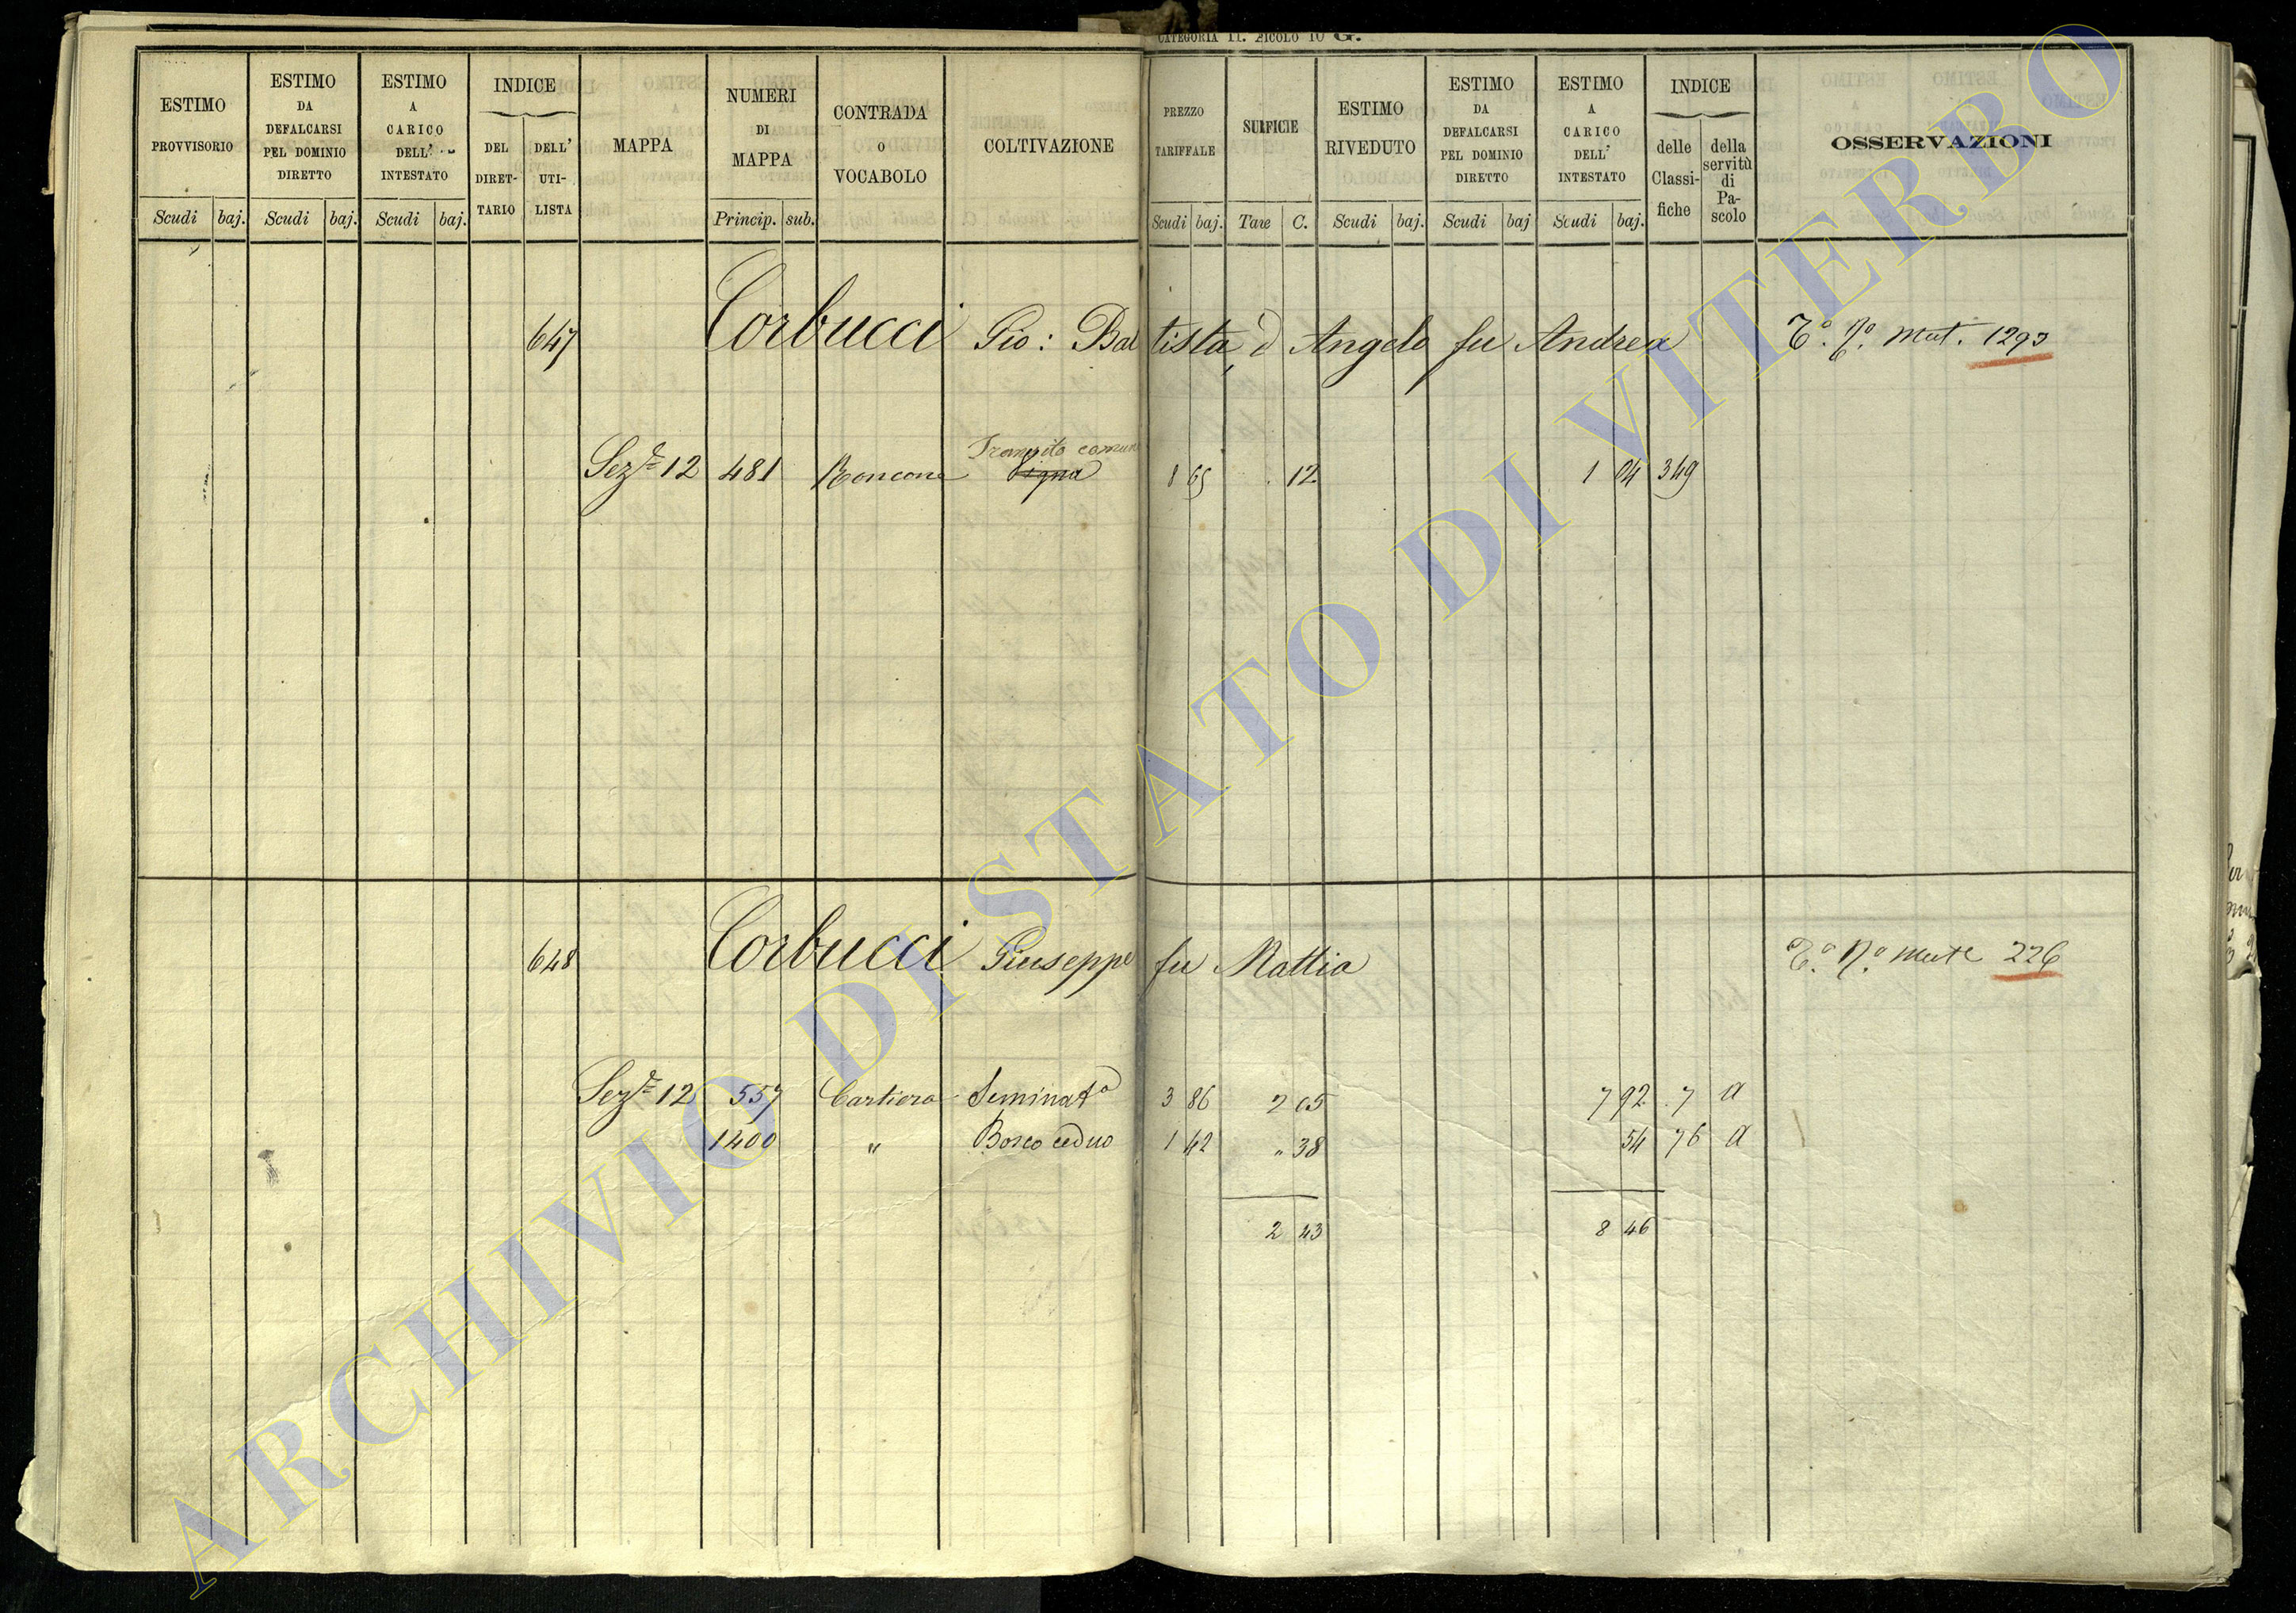 CATEGORIA II. 2ICOLO 10 G.
ESTIMO PROVVISORIO
Scudi baj.
ESTIMO DA DEFALCARSI PEL DOMINIO DIRETTO
Scudi baj.
ESTIMO A CARICO DELL' INTESTATO
Scudi baj.
INDICE
DEL DIRET- TARIO
DELL' UTI- LISTA
MAPPA
NUMERI DI MAPPA
Princip. sub.
CONTRADA O VOCABOLO
COLTIVAZIONE
PREZZO TARIFFALE
Scudi baj.
Tare C.
ESTIMO RIVEDUTO
Scudi baj.
ESTIMO DA DEFALCARSI PEL DOMINIO DIRETTO
Scudi baj
ESTIMO A CARICO DELL' INTESTATO
Scudi baj.
INDICE
delle Classi- fiche
della servitù di Pa- scolo
OSSERVAZIONI
647 Corbucci Gio: Battista, d Angelo fu Andrea T.º N.º Mut. 1293
Transito comune
Sez.e 12 481 Roncone Vigna 8 65 . 12 1 04 349
648 Corbucci Giuseppe fu Mattia T.º N.º Mut.e 226
Sez.e 12 557 Cartiera Seminatº 3 86 2 05 7 92 7 a
1400 " Bosco ceduo 1 42 " 38 54 76 a
2 43 8 46
ARCHIVIO DI STATO DI VITERBO